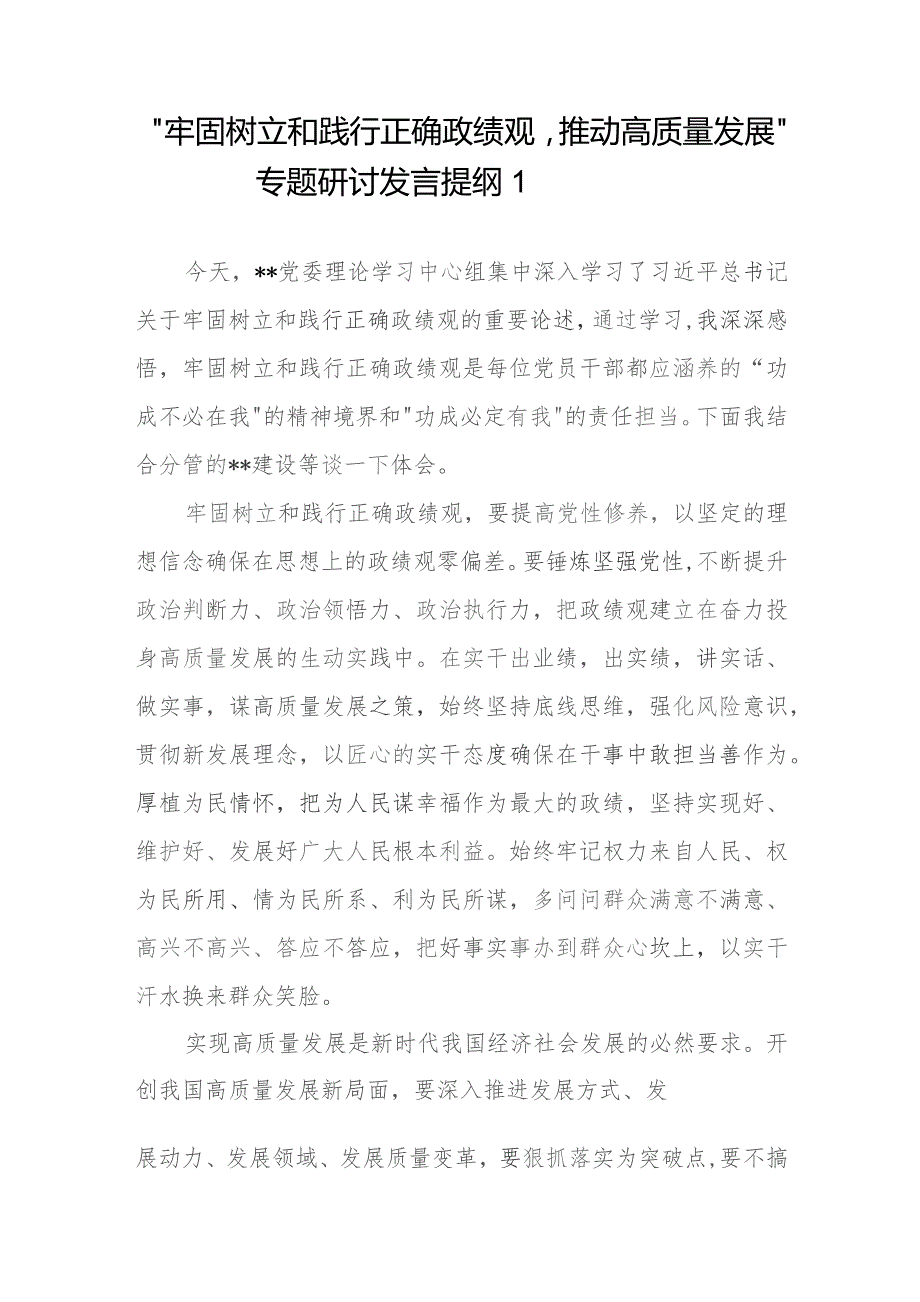 "牢固树立和践行正确政绩观，推动高质量发展"
专题研讨发言提纲1
今天，**党委理论学习中心组集中深入学习了习近平总书记
关于牢固树立和践行正确政绩观的重要论述，通过学习,我深深感
悟，牢固树立和践行正确政绩观是每位党员干部都应涵养的“功
成不必在我"的精神境界和"功成必定有我"的责任担当。下面我结
合分管的**建设等谈一下体会。
牢固树立和践行正确政绩观，要提高党性修养，以坚定的理
想信念确保在思想上的政绩观零偏差。要锤炼坚强党性,不断提升
政治判断力、政治领悟力、政治执行力，把政绩观建立在奋力投
身高质量发展的生动实践中。在实干出业绩，出实绩，讲实话、
做实事，谋高质量发展之策，始终坚持底线思维，强化风险意识，
贯彻新发展理念，以匠心的实干态度确保在干事中敢担当善作为。
厚植为民情怀，把为人民谋幸福作为最大的政绩，坚持实现好、
维护好、发展好广大人民根本利益。始终牢记权力来自人民、权
为民所用、情为民所系、利为民所谋，多问问群众满意不满意、
高兴不高兴、答应不答应，把好事实事办到群众心坎上，以实干
汗水换来群众笑脸。
实现高质量发展是新时代我国经济社会发展的必然要求。开
创我国高质量发展新局面，要深入推进发展方式、发
展动力、发展领域、发展质量变革，要狠抓落实为突破点,要不搞